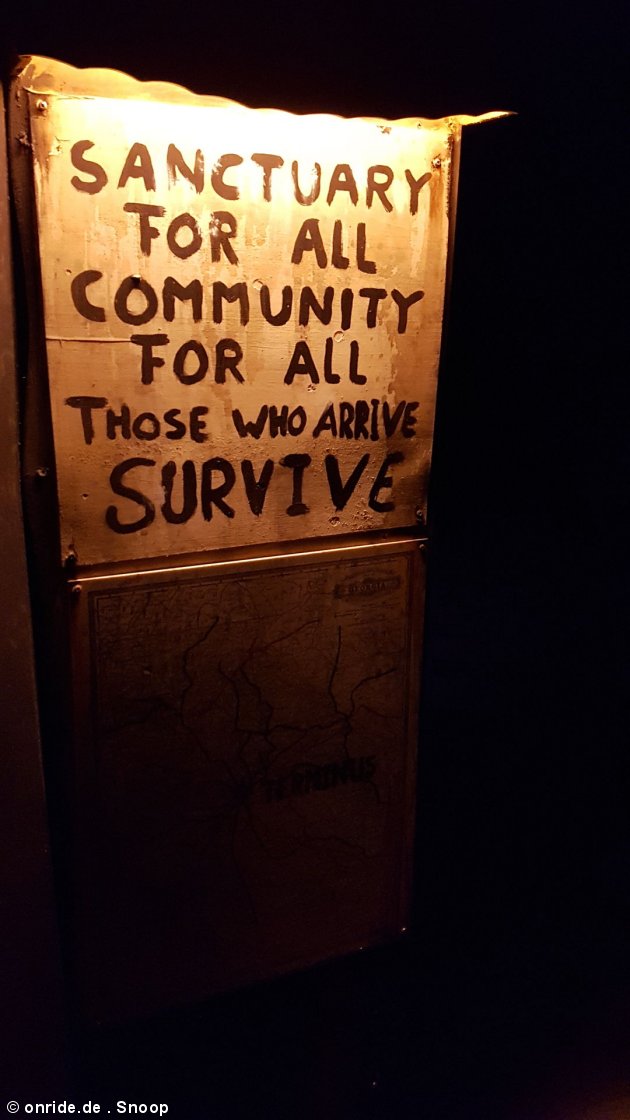 SANCTUARY
FOR ALL
COMMUNITY
FOR ALL
THOSE WHO ARRIVE
SURVIVE
GEORGIA
TERMINUS
© onride.de . Snoop